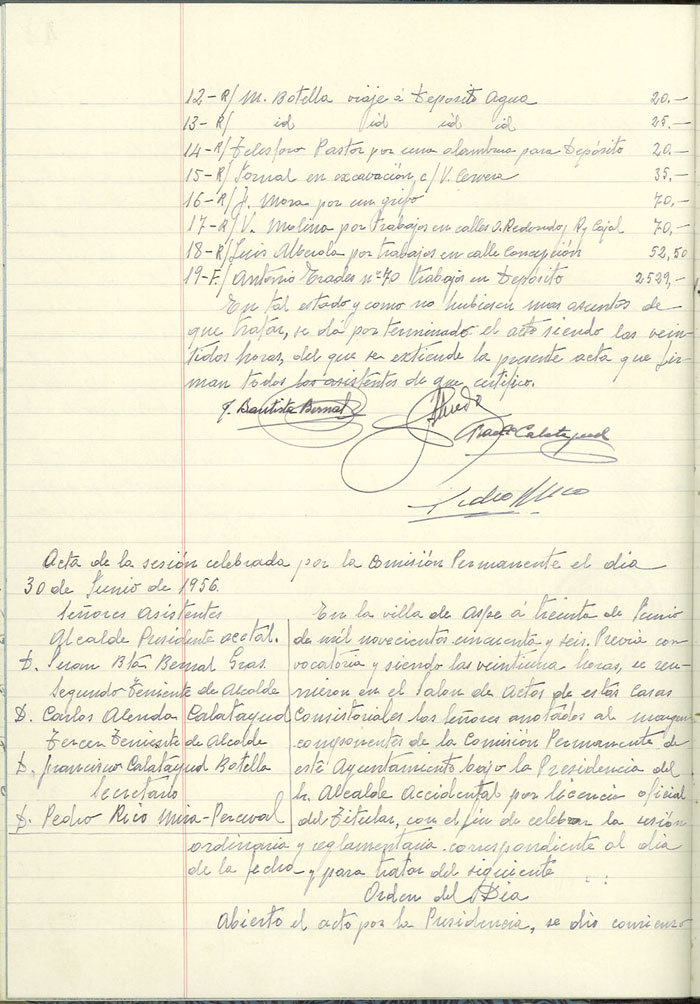 12-R/ M. Botella viaje á Deposito Agua 20.-
13-R/ id id id id 25.-
14-R/ Telesforo Pastor por una alambrera para Depósito 20.-
15-R/ Jornal en excavación c/ V. Cervera 35,-
16-R/ J. Mora por un grifo 70,-
17-R/ V. Molina por trabajos en calles D. Redondo y R y Cajal 70,-
18-R/ Luis Alberola por trabajos en calle Concepción 52,50
19-F./ Antonio Erades nº 70 trabajos en Depósito 2529,-
En tal estado y como no hubiesen mas asuntos de
que tratar, se dá por terminado el acto siendo las vein-
tidos horas, del que se extiende la presente acta que fir-
man todos los asistentes de que certifico.
J. Bautista Bernal
Calatayud
Pedro Rico
Acta de la sesión celebrada por la Comisión Permanente el dia
30 de Junio de 1956.
Señores Asistentes
Alcalde Presidente acctal.
D. Juan Btá Bernal Gras.
Segundo Teniente de Alcalde
D. Carlos Alenda Calatayud
Tercer Teniente de Alcalde
D. Francisco Calatayud Botella
Secretario
D. Pedro Rico Mira-Perceval
En la villa de Aspe á treinta de Junio
de mil novecientos cincuenta y seis. Previa con-
vocatoria y siendo las veintiuna horas, se reu-
nieron en el Salon de Actos de estas Casas
Consistoriales los Señores anotados al margen
componentes de la Comisión Permanente de
este Ayuntamiento bajo la Presidencia del
Sr. Alcalde Accidental por licencia oficial
del Titular, con el fin de celebrar la sesión
ordinaria y reglamentaria correspondiente al dia
de la fecha y para tratar del siguiente
Orden del Dia
Abierto el acto por la Presidencia, se dio comienzo